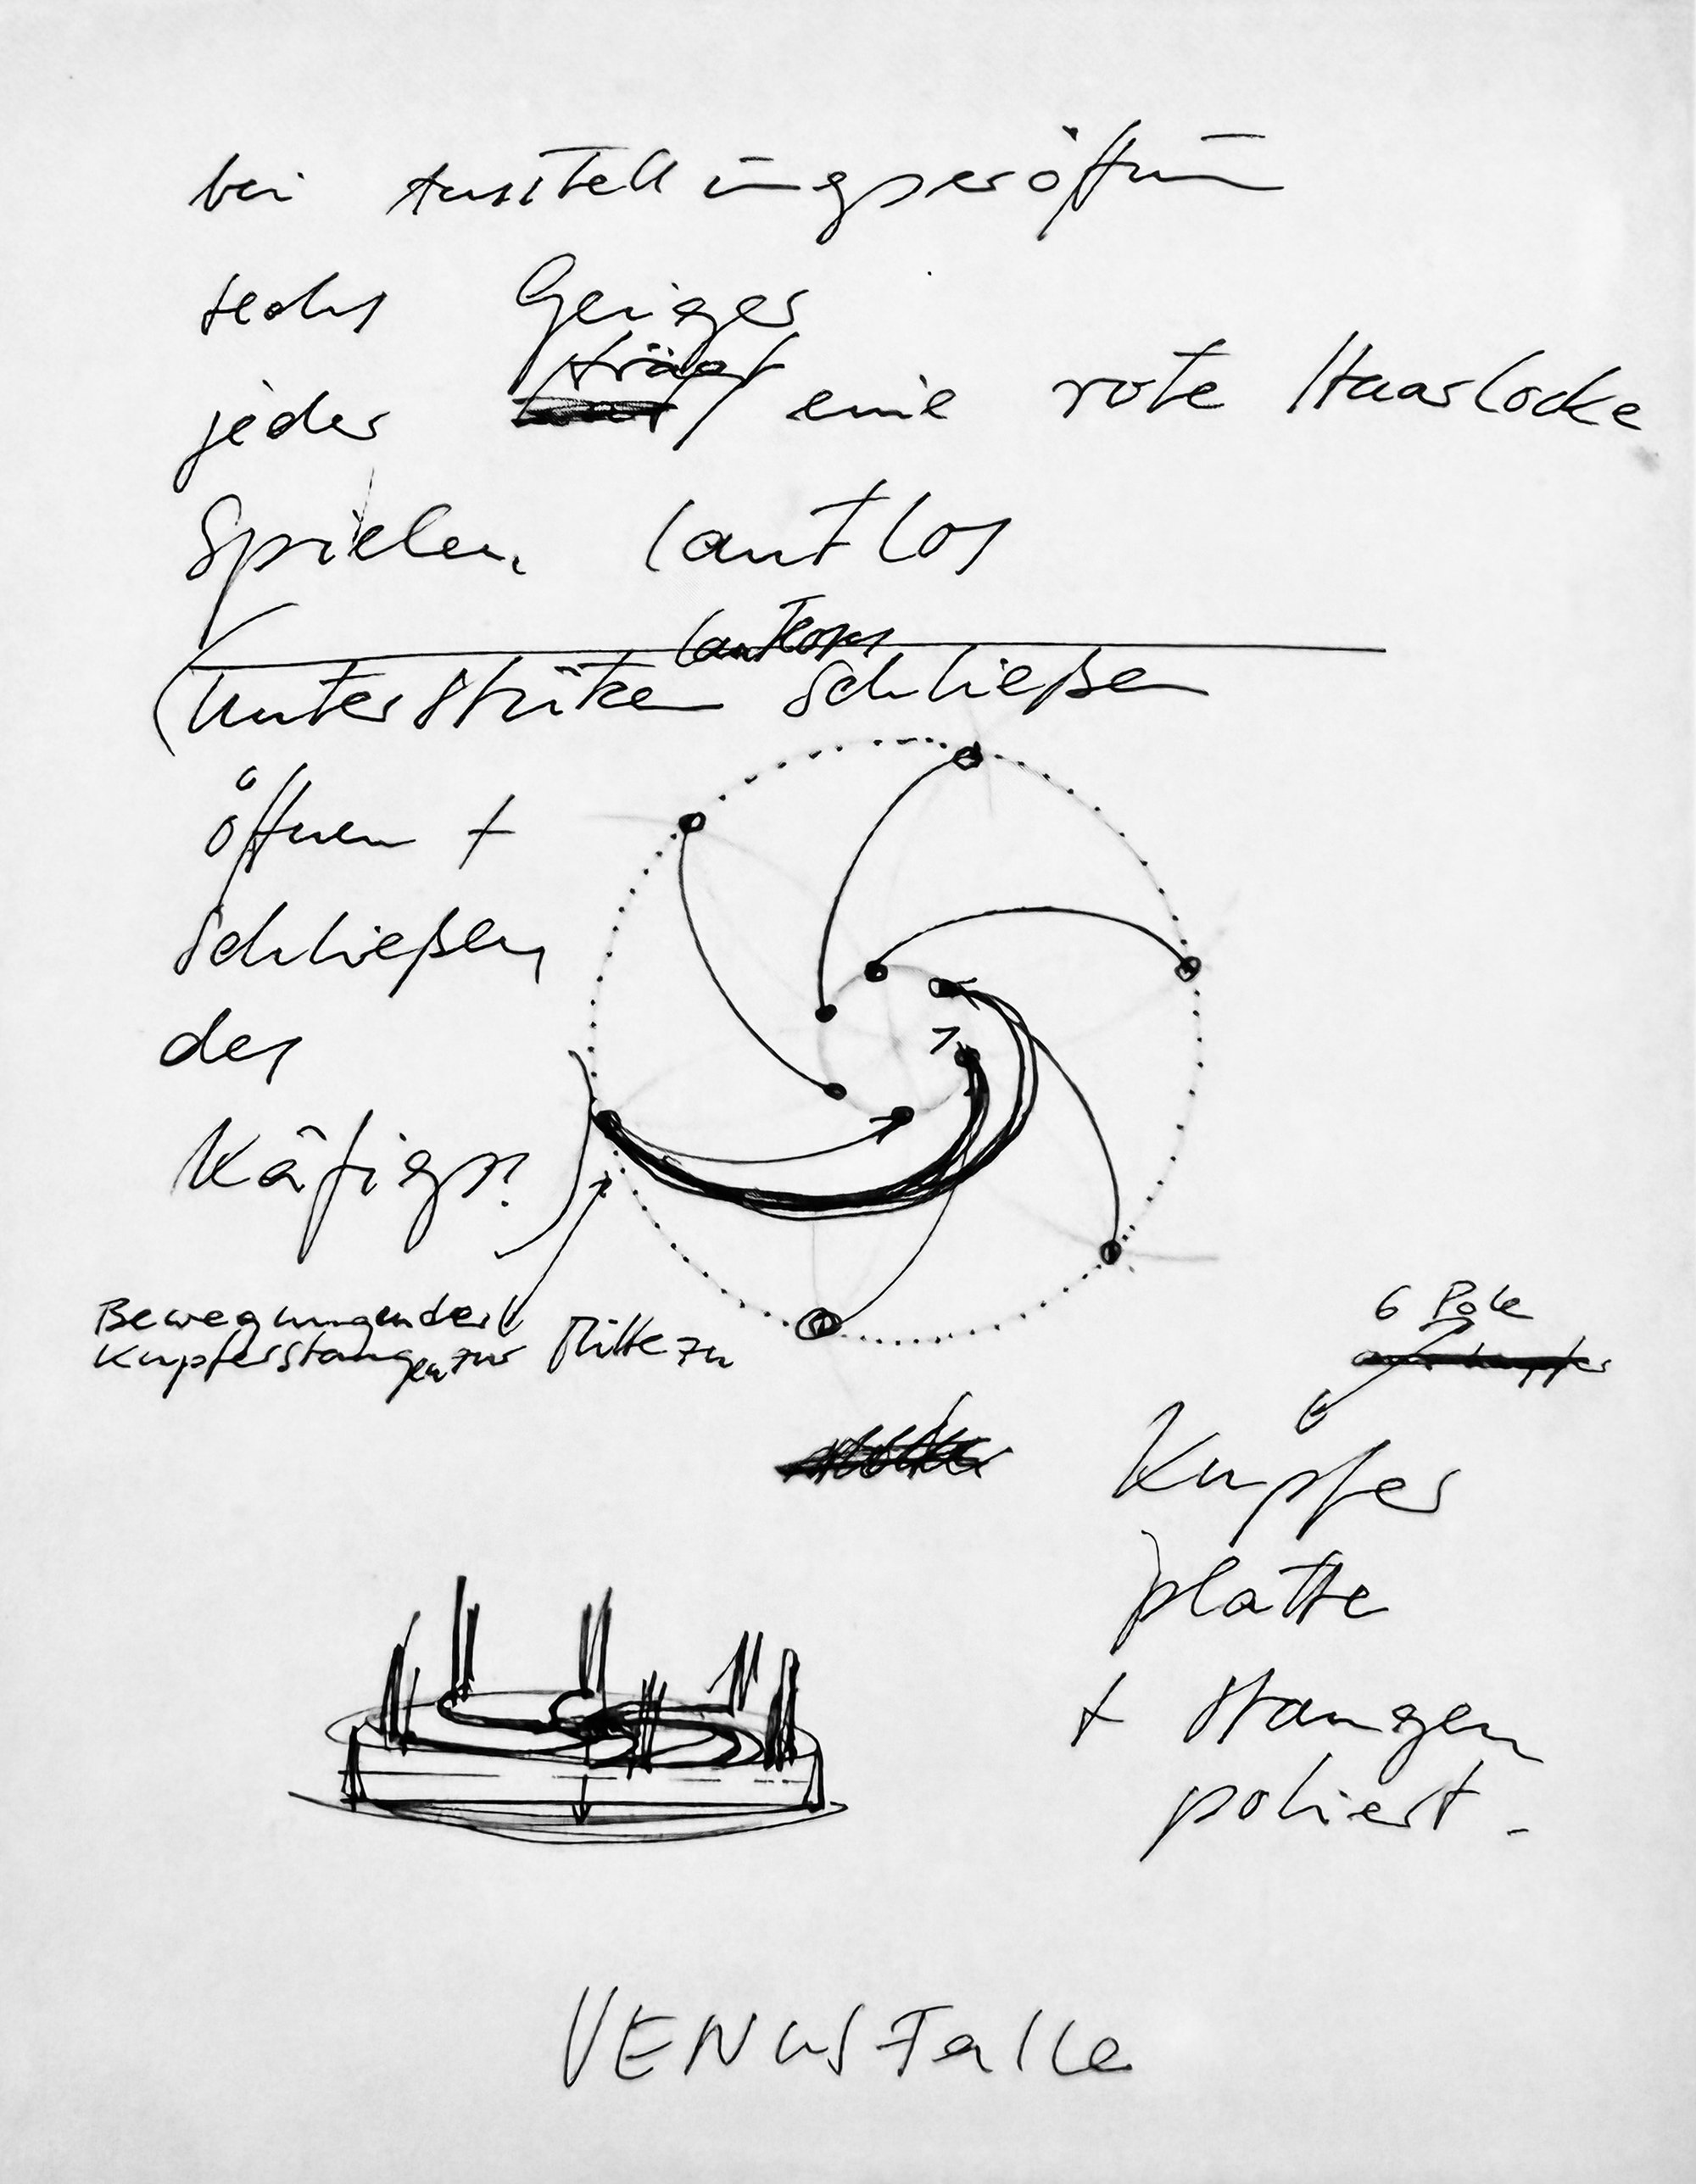 bei Ausstellungseröffnung
sechs Geiger
jeder trägt eine rote Haarlocke
Spielen lautlos
lautloses
(Unterstützen Schließen
öffnen +
Schließen
des
Käfigs?
Bewegungen der
Kupferstangen zur Mitte zu
6 Pole
Kupfer
platte
+ Stangen
poliert.
VENUSFalle